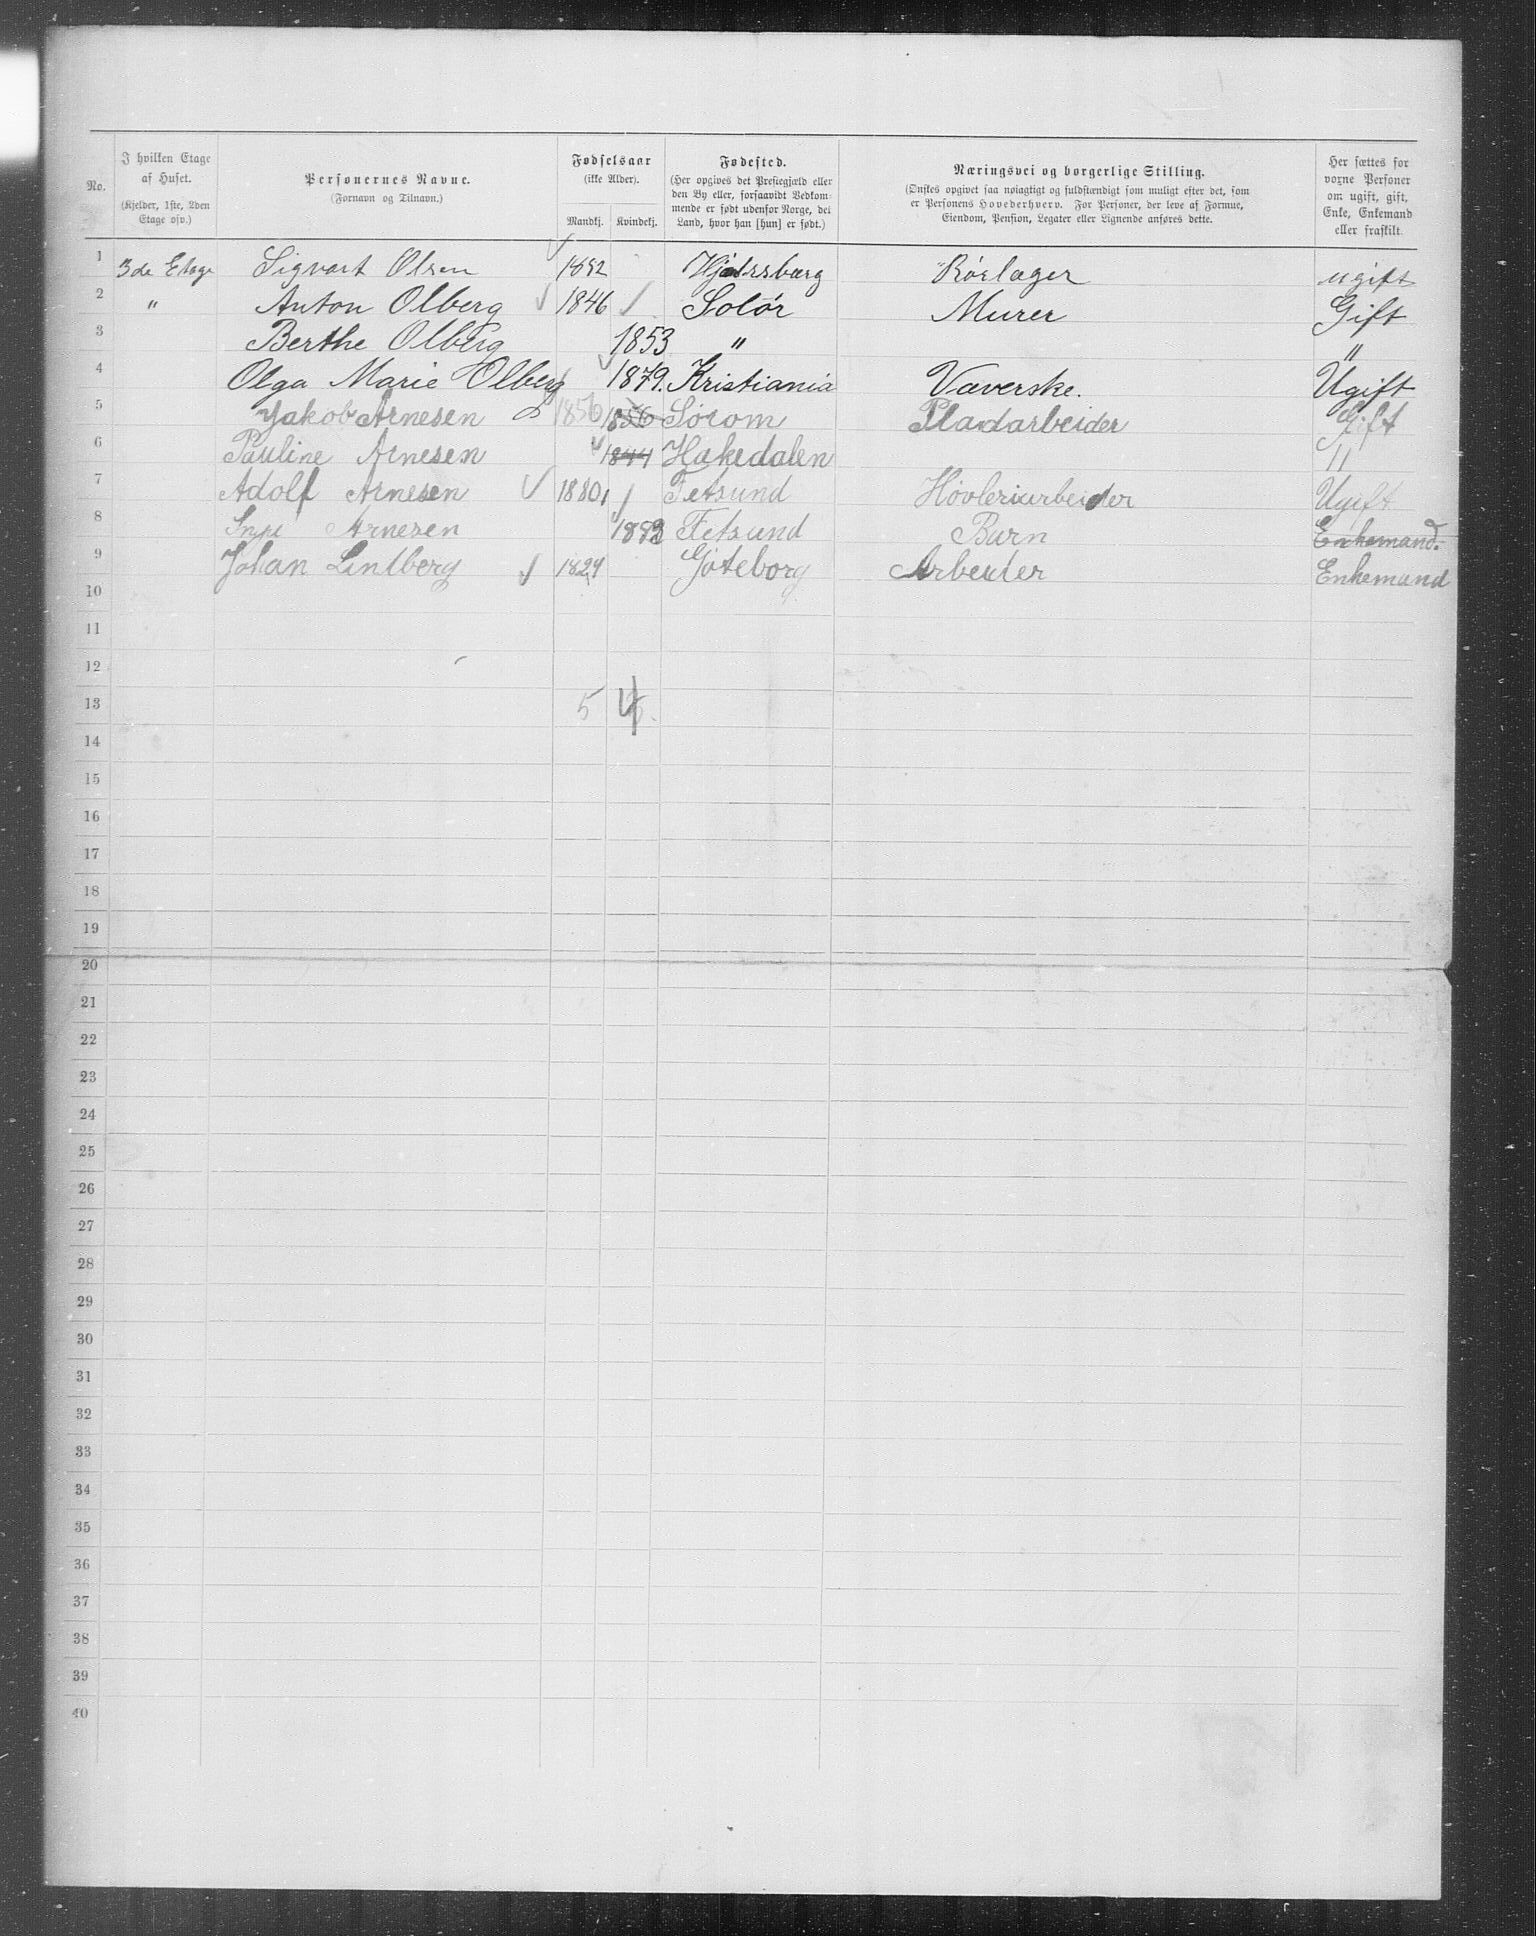 No. | I hvilken Etage af Huset. (Kjelder, 1ste, 2den Etage osv.) | Personernes Navne. (Fornavn og Tilnavn.) | Fødselsaar (ikke Alder). Mandkj. | Kvindekj. | Fødested. (Her opgives det Prestegjæld eller den By eller, forsaavidt Vedkommende er født udenfor Norge, det Land, hvor han [hun] er født.) | Næringsvei og borgerlige Stilling. (Ønskes opgivet saa nøiagtigt og fuldstændigt som muligt efter det, som er Personens Hovederhverv. For Personer, der leve af Formue, Eiendom, Pension, Legater eller Lignende anføres dette.) | Her sættes for voxne Personer om ugift, gift, Enke, Enkemand eller fraskilt.
1 3de Etage Sigvart Olsen 1892 Rørlager ugift
2 " Anton Olberg 1846 Solør Murer Gift
3 Berthe Olberg 1853 " "
4 Olga Marie Olberg 1879. Kristiania Væverske. Ugift
5 Jakob Arnesen 1856 1856 Sørom Pladarbeider Gift
6 Pauline Arnesen 1844 Hakedalen "
7 Adolf Arnesen 1880 Fetsund Høvleriarbeider Ugift
8 Arnesen Fetsund Barn Enkemand.
9 Johan Lindberg 1824 Gøteborg Arbeider Enkemand
10
11
12
13 5 4
14
15
16
17
18
19
20
21
22
23
24
25
26
27
28
29
30
31
32
33
34
35
36
37
38
39
40